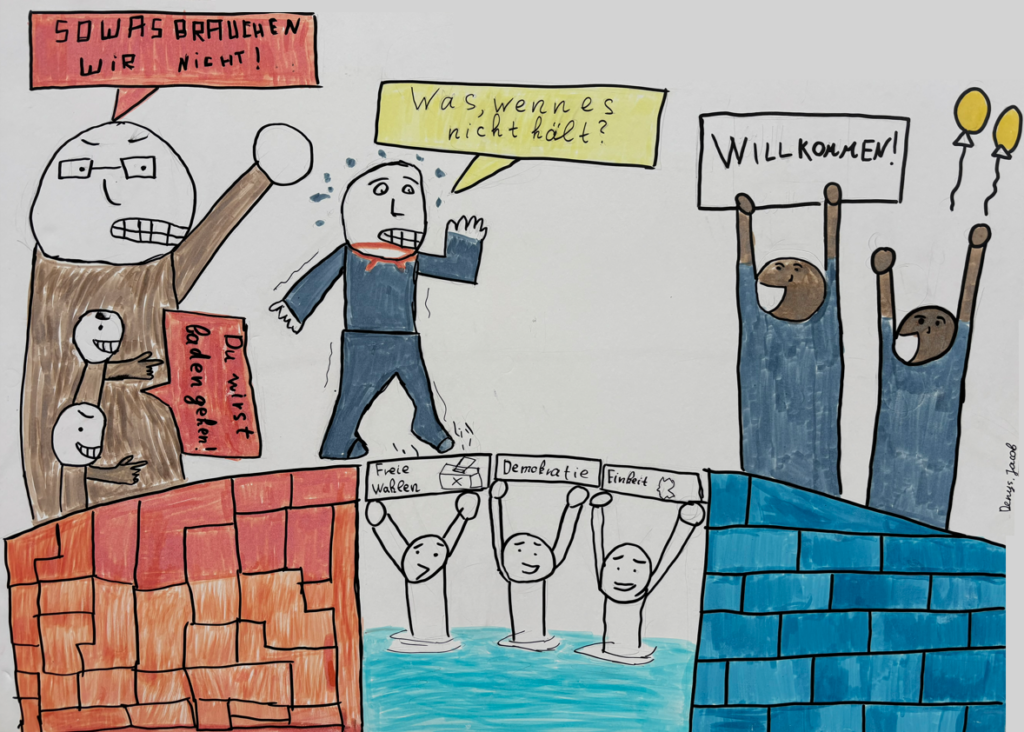 SOWAS BRAUCHEN
WIR NICHT!
Was, wenn es
nicht hält?
WILLKOMMEN!
Du wirst
baden gehen!
Freie
Wahlen
Demokratie
Einheit
Denys, Jacob